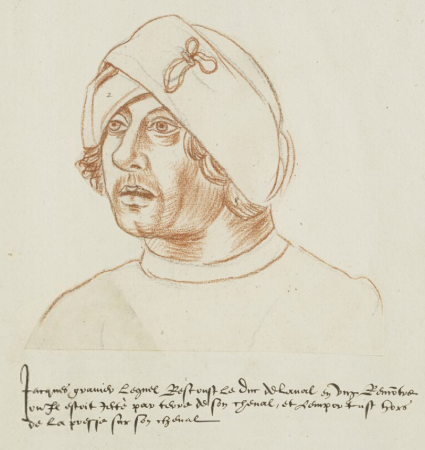 Jacques gravier Lequel Rescoust Le duc de Laval en Vng Rencõtre
ou Il estoit Jetté par terre de son cheual, et Lemportast hors
de La presse sur son cheual